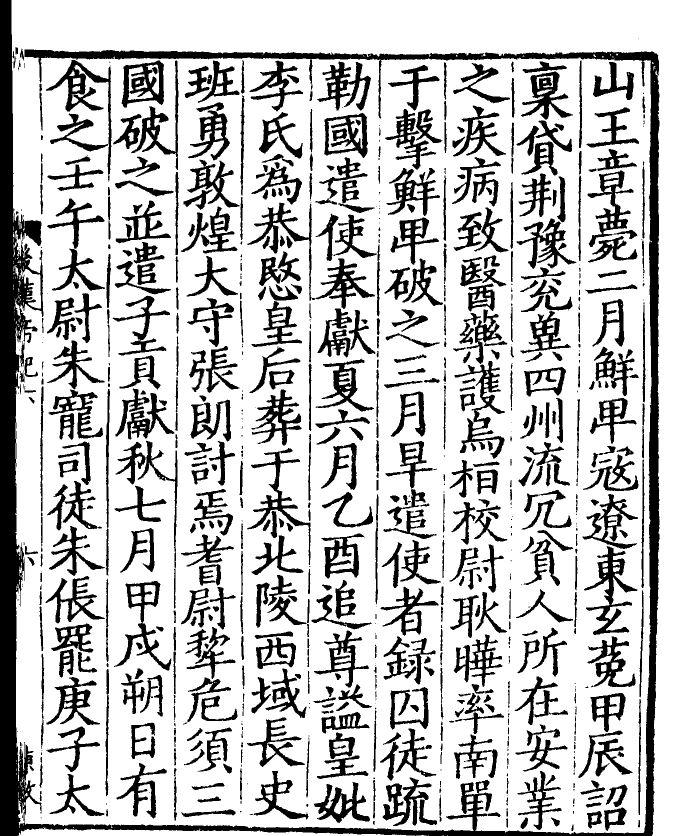 山王章薨二月鮮甲寇遼東玄菟甲辰詔
稟貸荆豫兖兾四州流冗貧人所在安業
之疾病致醫藥護烏桓校尉耿曄率南單
于擊鮮甲破之三月旱遣使者録囚徒䟽
勒國遣使奉獻夏六月乙酉追尊謚皇妣
李氏爲恭愍皇后葬于恭北陵西域長史
班勇敦煌大守張朗討焉耆尉犂危須三
國破之並遣子貢獻秋七月甲戍朔日有
食之壬午太尉朱寵司徒朱倀罷庚子太
漢 紀六
六